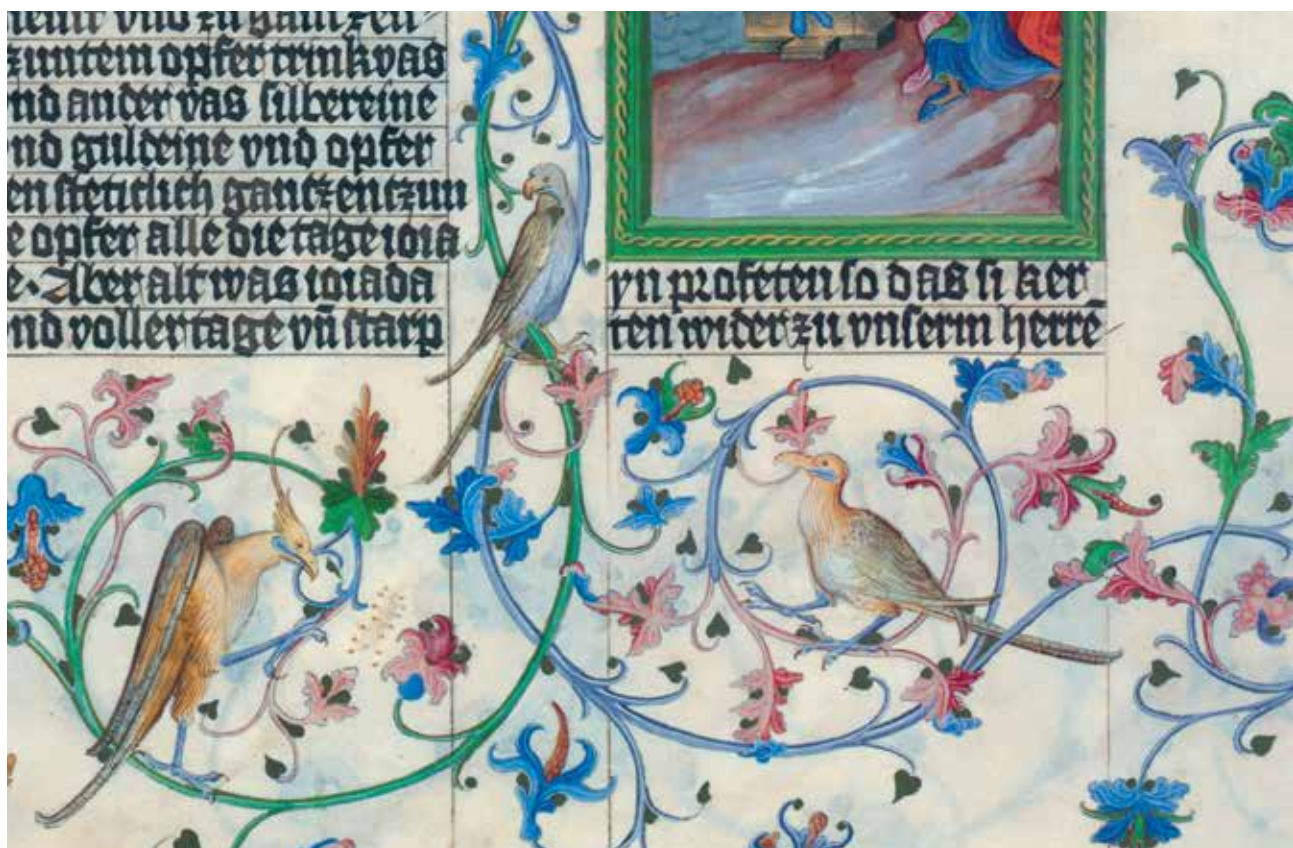 zuntem opfer trinkvas
nd ander vas silbereine
nd guldeine vnd opfer
en steticlich gantzentzun
e opfer alle die tage ioia
e. Aber alt was ioiada
nd voller tage vn̄ starp
yn profeten so das si ker
ten wider zu vnserm herrē